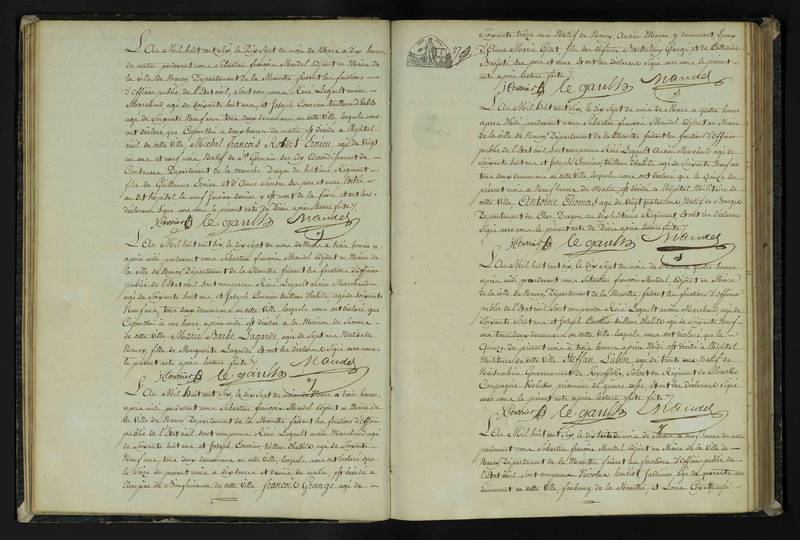 L'An Mil huit cent Six, le Dix Sept du mois de Mars a dix heures
du matin pardevant nous Sébastien françois Mandel adjoint au Maire de
la ville de Nancy Département de la Meurthe faisant les fonctions
d'Officier public de l'Etat civil, sont comparus René Legault ancien
Marchand agé de Soixante huit ans, et Joseph Cournier tailleur d'habits
agé de Soixante Neuf ans tous deux demeurans en cette Ville lesquels nous
ont déclaré que Cejourd'hui a deux heures du matin est décédé a l'hôpital
civil de cette ville Michel François Robert agé de Vingt
un ans et neuf mois Natif de St Germain
Département de la manche Dragon du huitieme Régiment
fils de Guillaume et d'Anne ses pere et mere
hôpital le neuf y est mort de la fievre et ont les
déclarans signé avec nous le présent acte de Décès après lecture faite
Cournier le gault Mandel
L'An Mil huit cent Six, le dix Sept du mois de Mars a trois heures
après midi pardevant nous Sébastien françois Mandel adjoint au Maire de
la ville de Nancy Département de la Meurthe faisant les fonctions d'Officier
public de l'Etat civil sont comparus René Legault ancien Marchand
agé de Soixante huit ans et Joseph Cournier tailleur d'habits agé de Soixante
Neuf ans, tous deux demeurans en cette Ville lesquels nous ont déclaré que
Cejourd'hui a une heure après midi est décédée a la Maison de Secours
de cette ville Marie Barbe Lagarde agée de Sept ans Native de
Nancy, fille de Marguerite Lagarde, et ont les déclarans signé avec nous
le présent acte après lecture faite
Cournier le gault Mandel
L'An Mil huit cent Six, le dix Sept du mois de Mars a trois heures
après midi, pardevant nous Sébastien françois Mandel adjoint au Maire de
la Ville de Nancy Département de la Meurthe faisant les fonctions d'Officier
public de l'Etat civil sont comparus René Legault ancien Marchand agé
de Soixante huit ans, et Joseph Cournier tailleur d'habits agé de Soixante
Neuf ans, tous deux demeurans en cette Ville, lesquels nous ont déclaré que
le Seize du présent mois a dix heures et demie du matin, est décédé a
l'hospice de Bienfaisance de cette Ville, françois Grange agé de
Soixante treize ans Natif de Nancy, Ancien Marin y demeurant Epoux
d'Anne Marie fils des défunts Barthelemy Grange et de Catherine
ses pere et mere. Et ont les déclarans signé avec nous le présent
acte après lecture faite
Cournier le gault Mandel
L'An Mil huit cent Six, le dix Sept du mois de Mars a quatre heures
après Midi pardevant nous Sébastien françois Mandel adjoint au Maire
de la ville de Nancy, Département de la Meurthe faisant les fonctions d'Officier
public de l'Etat civil, sont comparus René Legault Ancien Marchand agé de
Soixante huit ans, et Joseph Cournier tailleur d'habits agé de Soixante Neuf ans
tous deux demeurans en cette Ville lesquels nous ont déclaré que le Quinze du
présent mois a Neuf heures du Matin est décédé a l'hôpital Militaire de
cette Ville, Antoine Thomas agé de Vingt quatre ans Natif de
Département du Cher Dragon au dix huitieme Régiment, et ont les déclarans
signé avec nous le présent acte de Décès après lecture faite
Cournier le gault Mandel
L'An Mil huit cent Six, le dix Sept du mois de Mars a quatre heures
après midi pardevant nous Sébastien françois Mandel adjoint au Maire
de la ville de Nancy, Département de la Meurthe faisant les fonctions d'Officier
public de l'Etat civil sont comparus René Legault ancien Marchand agé de
Soixante huit ans et Joseph Cournier tailleur d'habits agé de Soixante Neuf
ans tous deux demeurans en cette Ville lesquels nous ont déclaré que le
Quinze du présent mois a trois heures après Midi, est décédé a l'hôpital
Militaire de cette Ville Steffan Lubin agé de trente ans Natif de
Gouvernement de Soldat du Régiment de
Compagnie prisonnier de guerre russe, et ont les déclarans Signé
avec nous le présent acte après lecture faite
Cournier le gault Mandel
L'An Mil huit cent Six, le dix du mois de Mars a neuf heures du matin
pardevant nous Sébastien françois Mandel adjoint au Maire de la Ville de
Nancy Département de la Meurthe faisant les fonctions d'Officier public de
l'Etat civil sont comparus Nicolas Jardinier agé de quarante ans
demeurant en cette Ville, faubourg de la Meurthe, et Louis